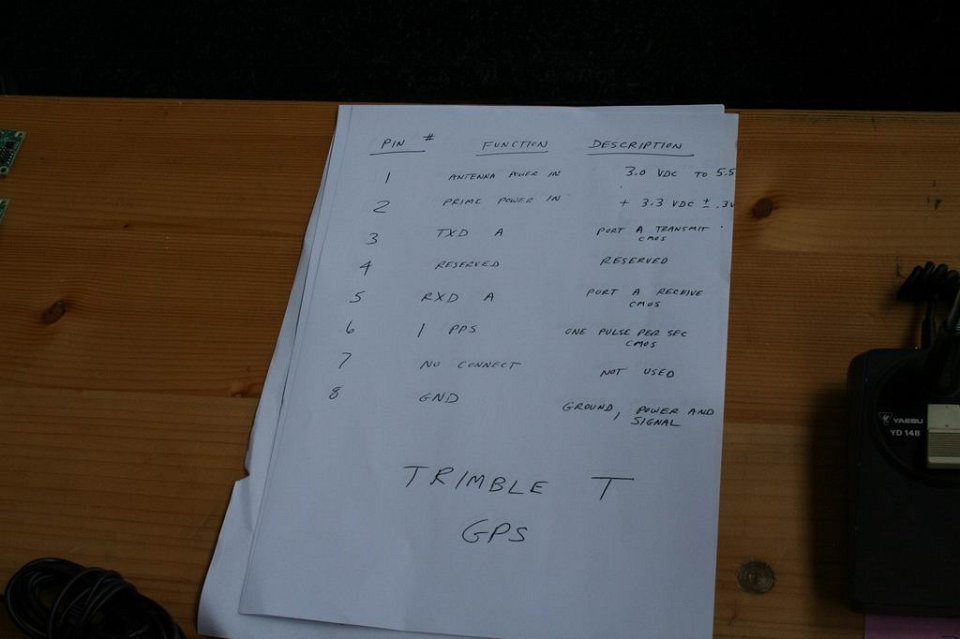 PIN # FUNCTION DESCRIPTION
1 ANTENNA POWER IN 3.0 VDC TO 5.5
2 PRIME POWER IN + 3.3 VDC ± .3V
3 TXD A PORT A TRANSMIT
CMOS
4 RESERVED RESERVED
5 RXD A PORT A RECEIVE
CMOS
6 1 PPS ONE PULSE PER SEC
CMOS
7 NO CONNECT NOT USED
8 GND GROUND, POWER AND
SIGNAL
TRIMBLE T
GPS
YAESU
YD 148